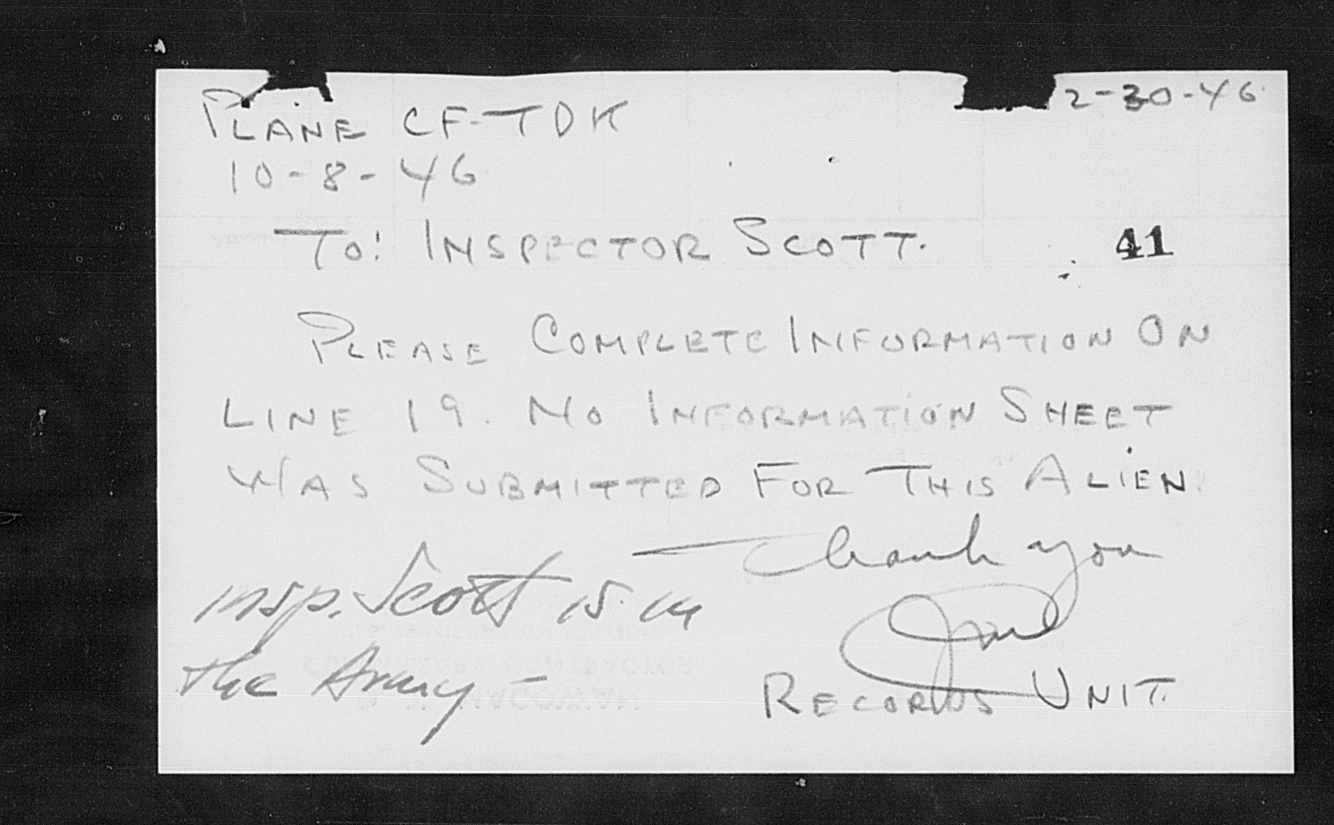 PLANE CF-TDK
2-30-46
10-8-46
TO: INSPECTOR SCOTT.
41
PLEASE COMPLETE INFORMATION ON
LINE 19. NO INFORMATION SHEET
WAS SUBMITTED FOR THIS ALIEN.
Thank you
Insp. Scott is in
the Army -
RECORDS UNIT.